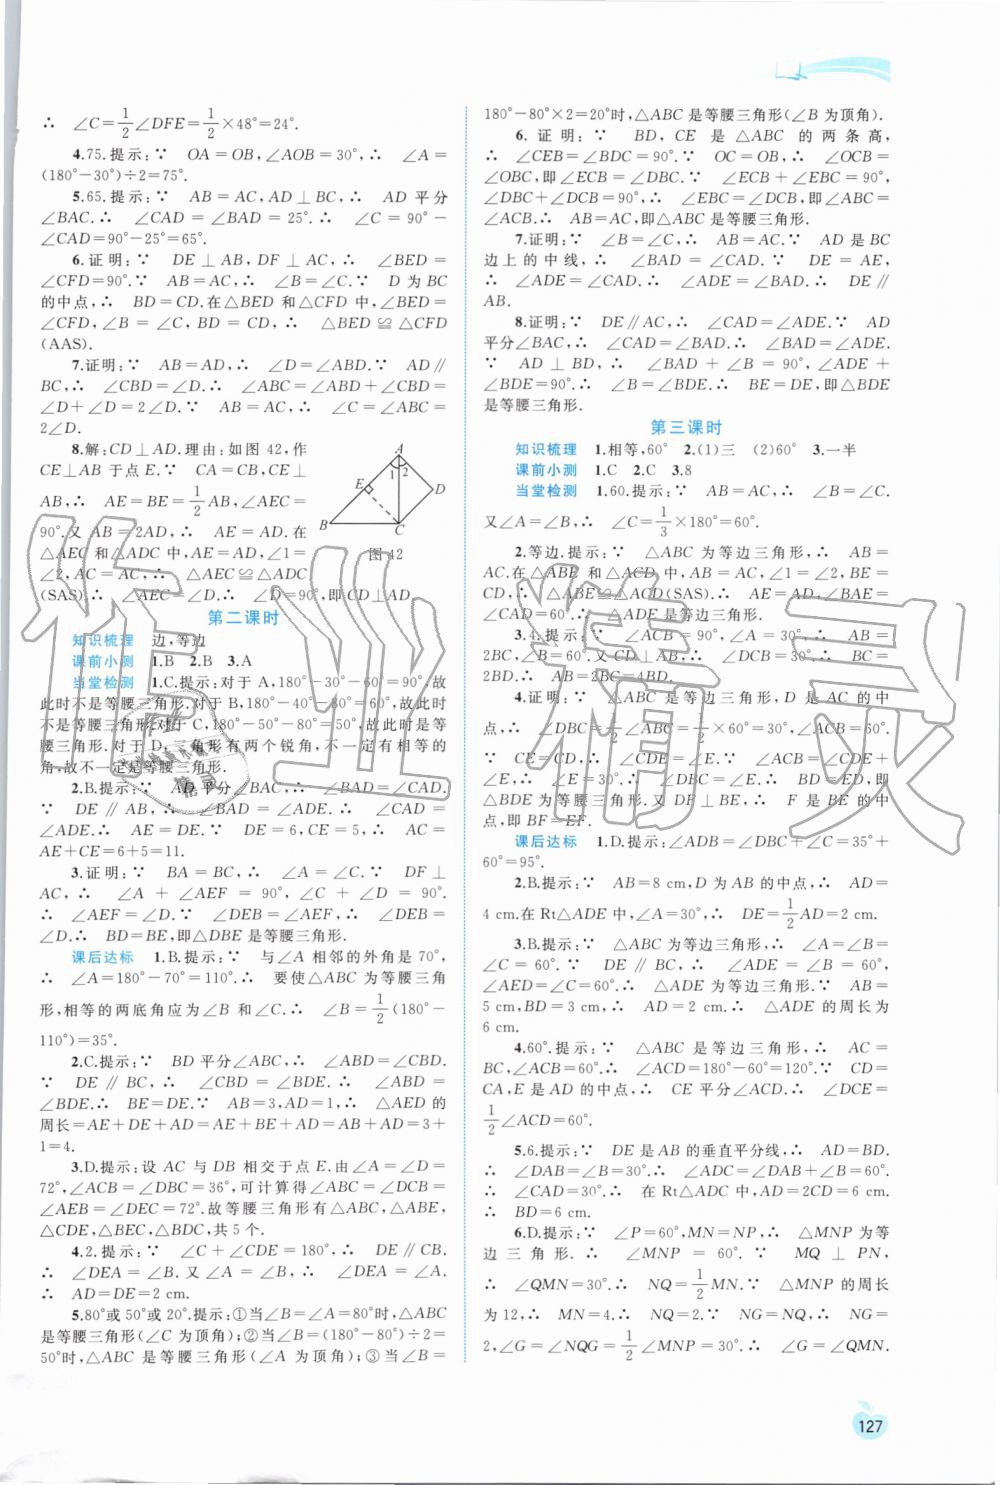 ∴　∠C=1/2∠DFE=1/2×48°=24°.
4.75.提示:∵　OA=OB,∠AOB=30°,∴　∠A=
(180°-30°)÷2=75°.
5.65.提示:∵　AB=AC,AD⊥BC,∴　AD平分
∠BAC.∴　∠CAD=∠BAD=25°.∴　∠C=90°-
∠CAD=90°-25°=65°.
6.证明:∵　DE⊥AB,DF⊥AC,∴　∠BED=
∠CFD=90°.∵　AB=AC,∴　∠B=∠C.∵　D为BC
的中点,∴　BD=CD.在△BED和△CFD中,∠BED=
∠CFD,∠B=∠C,BD=CD,∴　△BED≌△CFD
(AAS).
7.证明:∵　AB=AD,∴　∠D=∠ABD.∵　AD∥
BC,∴　∠CBD=∠D.∴　∠ABC=∠ABD+∠CBD=
∠D+∠D=2∠D.∵　AB=AC,∴　∠C=∠ABC=
2∠D.
8.解:CD⊥AD.理由:如图42,作
CE⊥AB于点E.∵　CA=CB,CE⊥
AB,∴　AE=BE=1/2AB,∠AEC=
90°.又AB=2AD,∴　AE=AD.在
△AEC和△ADC中,AE=AD,∠1=
∠2,AC=AC,∴　△AEC≌△ADC
(SAS).∴　∠AEC=∠D=90°,即CD⊥AD.
A
1
2
E
D
B
C
图42
第二课时
知识梳理　边,等边
课前小测　1.B　2.B　3.A
当堂检测　1.C.提示:对于A,180°-30°-60°=90°,故
此时不是等腰三角形.对于B,180°-40°-80°=60°,故此时
不是等腰三角形.对于C,180°-50°-80°=50°,故此时是等
腰三角形.对于D,三角形有两个锐角,不一定有两个角相
等,故不一定是等腰三角形.
2.B.提示:∵　AD平分∠BAC,∴　∠BAD=∠CAD.
∵　DE∥AB,∴　∠BAD=∠ADE.∴　∠CAD
=∠ADE.∴　AE=DE.∵　DE=6,CE=5,∴　AC=
AE+CE=6+5=11.
3.证明:∵　BA=BC,∴　∠A=∠C.∵　DF⊥
AC,∴　∠A+∠AEF=90°,∠C+∠D=90°.
∴　∠AEF=∠D.∵　∠DEB=∠AEF,∴　∠DEB=
∠D.∴　BD=BE,即△DBE是等腰三角形.
课后达标　1.B.提示:∵　与∠A相邻的外角是70°,
∴　∠A=180°-70°=110°.∴　要使△ABC为等腰三角
形,相等的两底角应为∠B和∠C.∴　∠B=1/2(180°-
110°)=35°.
2.C.提示:∵　BD平分∠ABC,∴　∠ABD=∠CBD.
∵　DE∥BC,∴　∠CBD=∠BDE.∴　∠ABD=
∠BDE.∴　BE=DE.∵　AB=3,AD=1,∴　△AED的
周长=AE+DE+AD=AE+BE+AD=AB+AD=3+
1=4.
3.D.提示:设AC与DB相交于点E.由∠A=∠D=
72°,∠ACB=∠DBC=36°,可计算得∠ABC=∠DCB=
∠AEB=∠DEC=72°.故等腰三角形有△ABC,△ABE,
△CDE,△BEC,△BDC,共5个.
4.2.提示:∵　∠C+∠CDE=180°,∴　DE∥CB.
∴　∠DEA=∠B.又∠A=∠B,∴　∠DEA=∠A.
∴　AD=DE=2 cm.
5.80°或50°或20°.提示:①当∠B=∠A=80°时,△ABC
是等腰三角形(∠C为顶角);②当∠B=(180°-80°)÷2=
50°时,△ABC是等腰三角形(∠A为顶角);③当∠B=
180°-80°×2=20°时,△ABC是等腰三角形(∠B为顶角).
6.证明:∵　BD,CE是△ABC的两条高,
∴　∠CEB=∠BDC=90°.∵　OC=OB,∴　∠OCB=
∠OBC,即∠ECB=∠DBC.∵　∠ECB+∠EBC=90°,
∠DBC+∠DCB=90°,∴　∠EBC=∠DCB,即∠ABC=
∠ACB.∴　AB=AC,即△ABC是等腰三角形.
7.证明:∵　∠B=∠C,∴　AB=AC.∵　AD是BC
边上的中线,∴　∠BAD=∠CAD.∵　DE=AE,
∴　∠ADE=∠CAD.∴　∠ADE=∠BAD.∴　DE∥
AB.
8.证明:∵　DE∥AC,∴　∠CAD=∠ADE.∵　AD
平分∠BAC,∴　∠CAD=∠BAD.∴　∠BAD=∠ADE.
∵　AD⊥BD,∴　∠BAD+∠B=90°,∠ADE+
∠BDE=90°.∴　∠B=∠BDE.∴　BE=DE,即△BDE
是等腰三角形.
第三课时
知识梳理　1.相等,60°　2.(1)三　(2)60°　3.一半
课前小测　1.C　2.C　3.8
当堂检测　1.60.提示:∵　AB=AC,∴　∠B=∠C.
又∠A=∠B,∴　∠C=1/3×180°=60°.
2.等边.提示:∵　△ABC为等边三角形,∴　AB=
AC.在△ABE和△ACD中,AB=AC,∠1=∠2,BE=
CD,∴　△ABE≌△ACD(SAS).∴　AE=AD,∠BAE=
∠CAD=60°.∴　△ADE是等边三角形.
3.4.提示:∵　∠ACB=90°,∠A=30°,∴　AB=
2BC,∠B=60°.又CD⊥AB,∴　∠DCB=30°.∴　BC=
2BD.∴　AB=2BC=4BD.
4.证明:∵　△ABC是等边三角形,D是AC的中
点,∴　∠DBC=1/2∠ABC=1/2×60°=30°,∠ACB=60°.
∵　CE=CD,∴　∠CDE=∠E.∵　∠ACB=∠CDE+
∠E,∴　∠E=30°.∴　∠DBC=∠E.∴　BD=DE,即
△BDE为等腰三角形.又DF⊥BE,∴　F是BE的中
点,即BF=EF.
课后达标　1.D.提示:∠ADB=∠DBC+∠C=35°+
60°=95°.
2.B.提示:∵　AB=8 cm,D为AB的中点,∴　AD=
4 cm.在Rt△ADE中,∠A=30°,∴　DE=1/2AD=2 cm.
3.B.提示:∵　△ABC为等边三角形,∴　∠A=∠B=
∠C=60°.∵　DE∥BC,∴　∠ADE=∠B=60°,∠AED=
∠C=60°.∴　△ADE为等边三角形.∵　AB=
5 cm,BD=3 cm,∴　AD=2 cm.∴　△ADE的周长为
6 cm.
4.60°.提示:∵　△ABC是等边三角形,∴　AC=
BC,∠ACB=60°.∴　∠ACD=180°-60°=120°.∵　CD=
CA,E是AD的中点,∴　CE平分∠ACD.∴　∠DCE=
1/2∠ACD=60°.
5.6.提示:∵　DE是AB的垂直平分线,∴　AD=BD.
∴　∠DAB=∠B=30°.∴　∠ADC=∠DAB+∠B=60°.
∴　∠CAD=30°.∴　在Rt△ADC中,AD=2CD=6 cm.
∴　BD=6 cm.
6.D.提示:∵　∠P=60°,MN=NP,∴　△MNP为等
边三角形.∴　∠MNP=60°.∵　MQ⊥PN,
∴　∠QMN=30°.∴　NQ=1/2MN.∵　△MNP的周长
为12,∴　MN=4.∴　NQ=2.∵　NG=NQ,∴　NG=
2,∠G=∠NQG=1/2∠MNP=30°.∴　∠G=∠QMN.
127
作业精灵